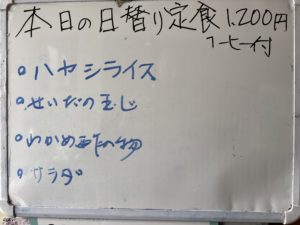 本日の日替り定食1,200円
コーヒー付
・ハヤシライス
・せいだの玉じ
・わかめ酢の物
・サラダ